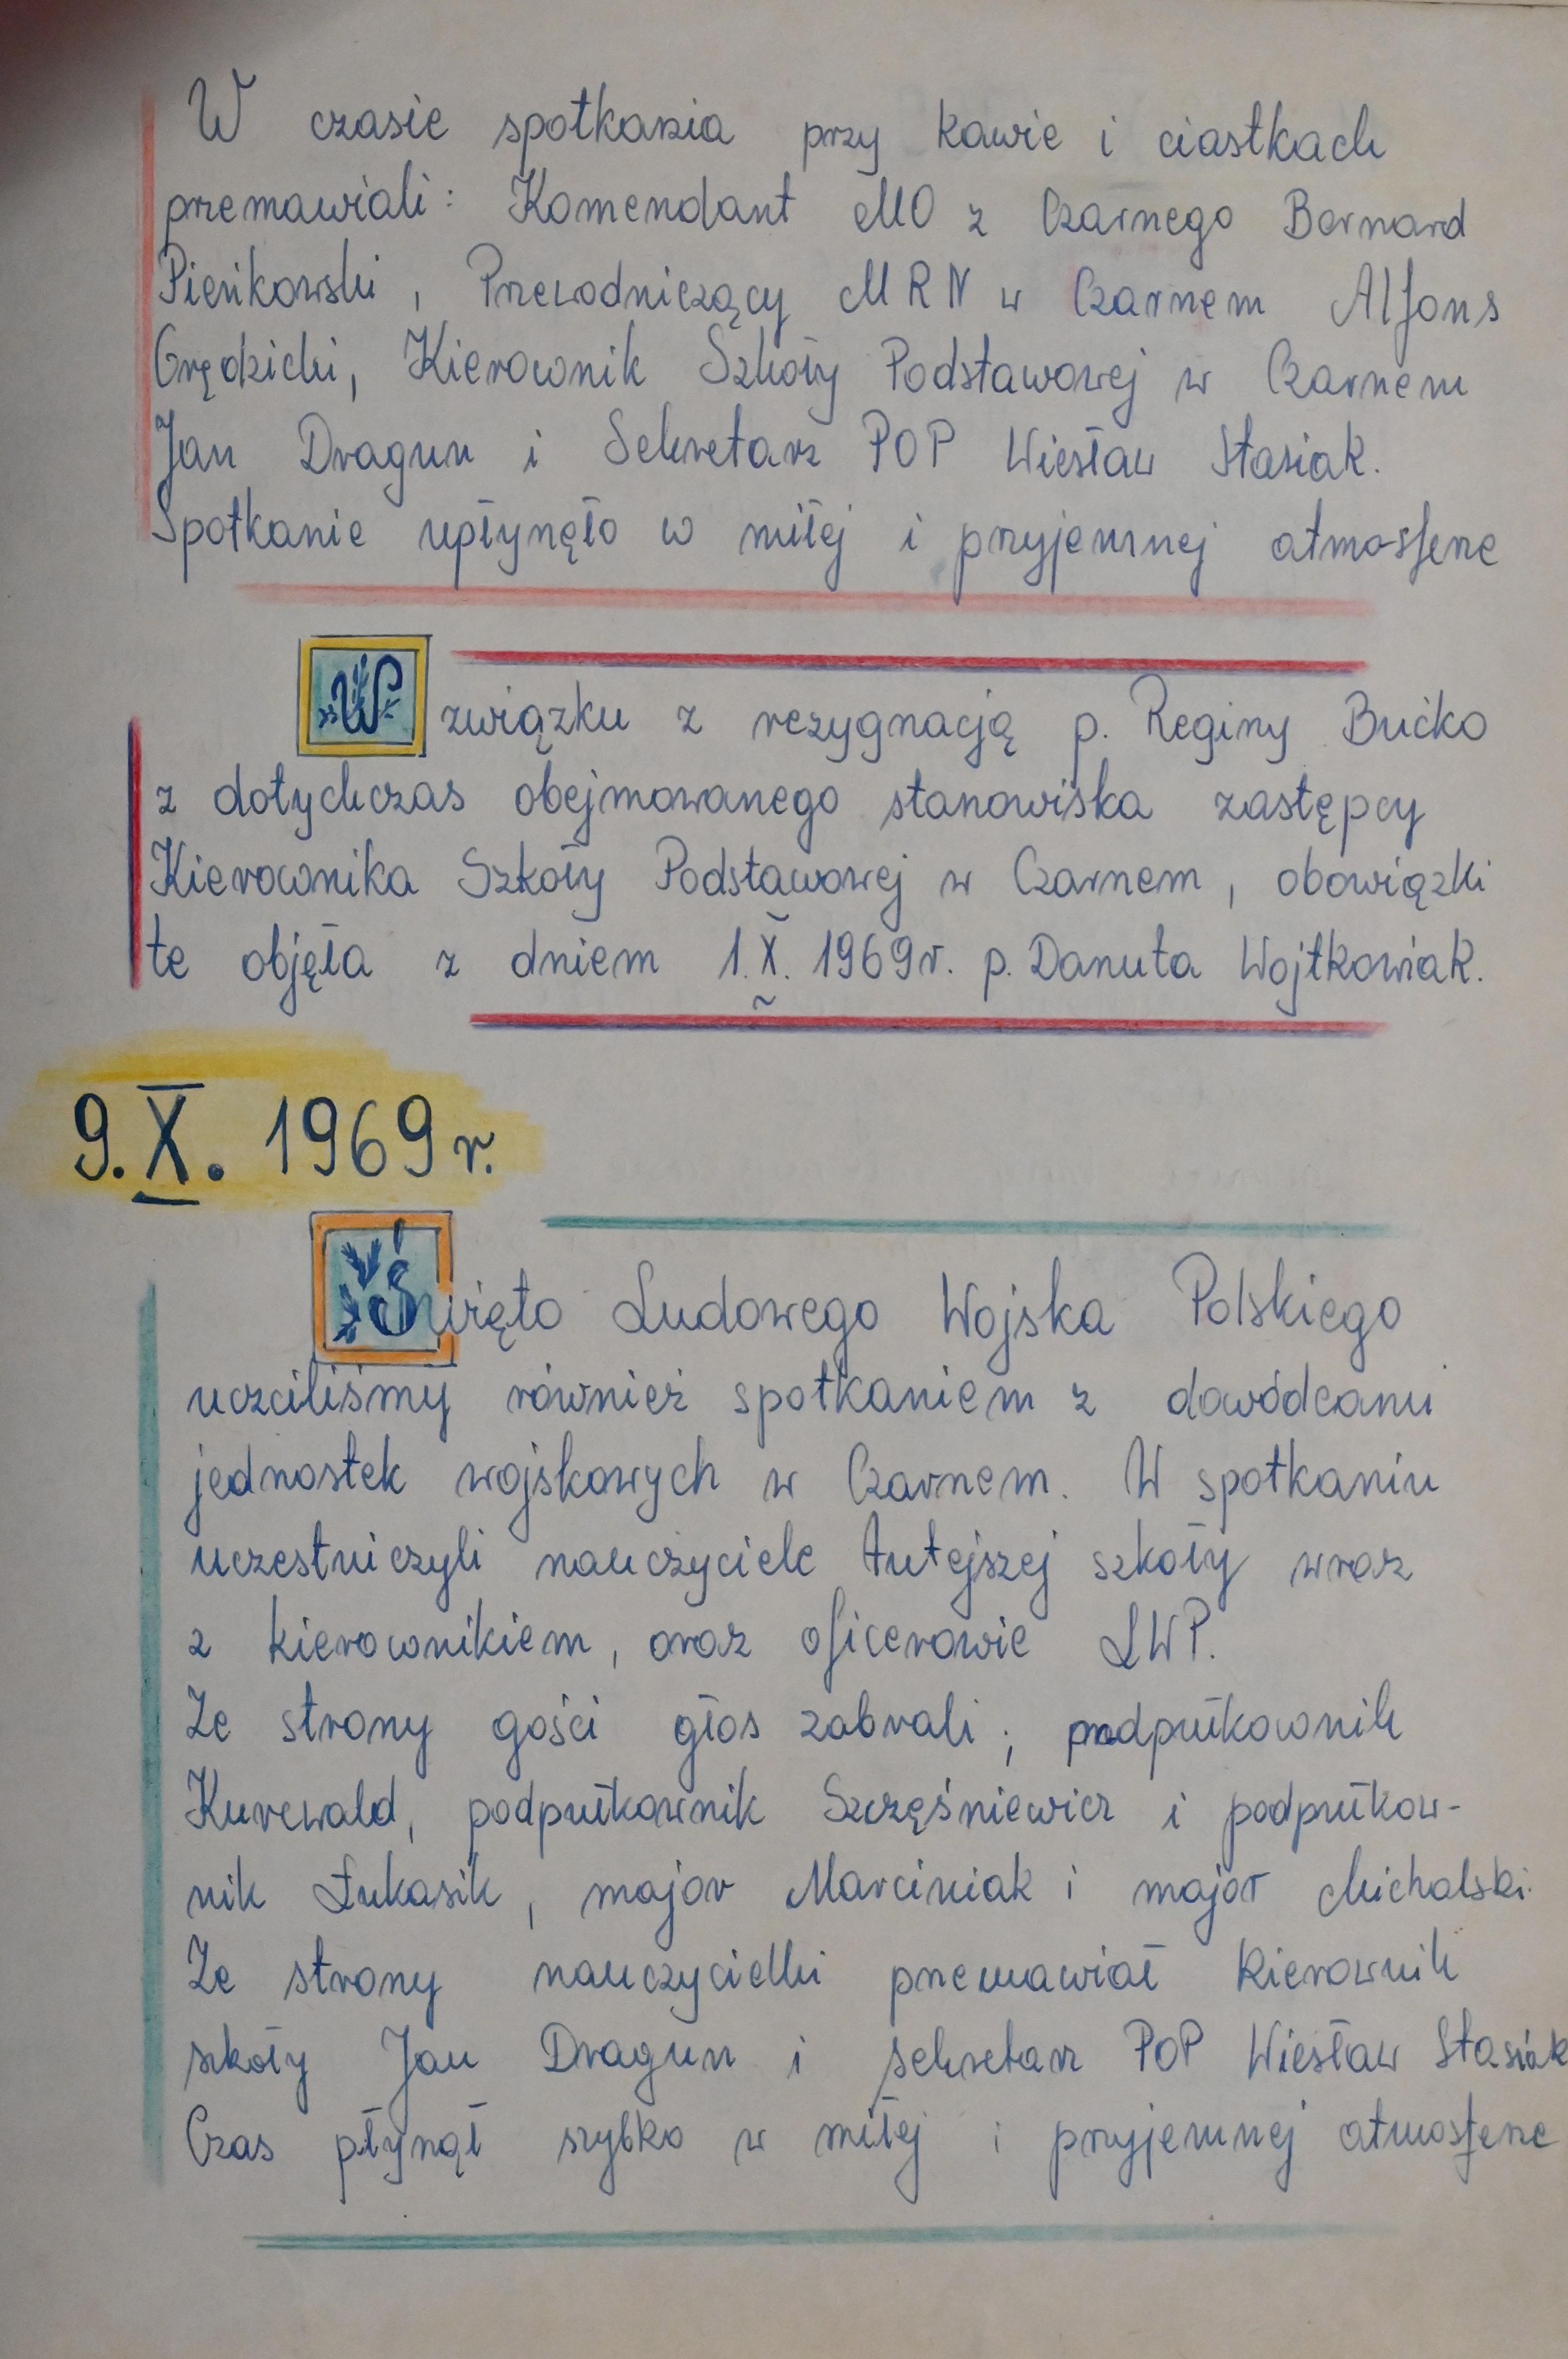 W czasie spotkania przy kawie i ciastkach
przemawiali: Komendant MO z Czarnego Bernard
Pieńkowski, Przewodniczący MRN w Czarnem Alfons
Grędzicki, Kierownik Szkoły Podstawowej w Czarnem
Jan Dragun i Sekretarz POP Wiesław Stasiak.
Spotkanie upłynęło w miłej i przyjemnej atmosferze
W związku z rezygnacją p. Reginy Bućko
z dotychczas obejmowanego stanowiska zastępcy
Kierownika Szkoły Podstawowej w Czarnem, obowiązki
te objęła z dniem 1.X.1969r. p. Danuta Wojtkowiak.
9.X.1969r.
Święto Ludowego Wojska Polskiego
uczciliśmy również spotkaniem z dowódcami
jednostek wojskowych w Czarnem. W spotkaniu
uczestniczyli nauczyciele tutejszej szkoły wraz
z kierownikiem, oraz oficerowie LWP.
Ze strony gości głos zabrali; podpułkownik
Kurcwald, podpułkownik Szczęśniewicz i podpułkow-
nik Łukasik, major Marciniak i major Michalski.
Ze strony nauczycielki przemawiał kierownik
szkoły Jan Dragun i sekretarz POP Wiesław Stasiak
Czas płynął szybko w miłej i przyjemnej atmosferze